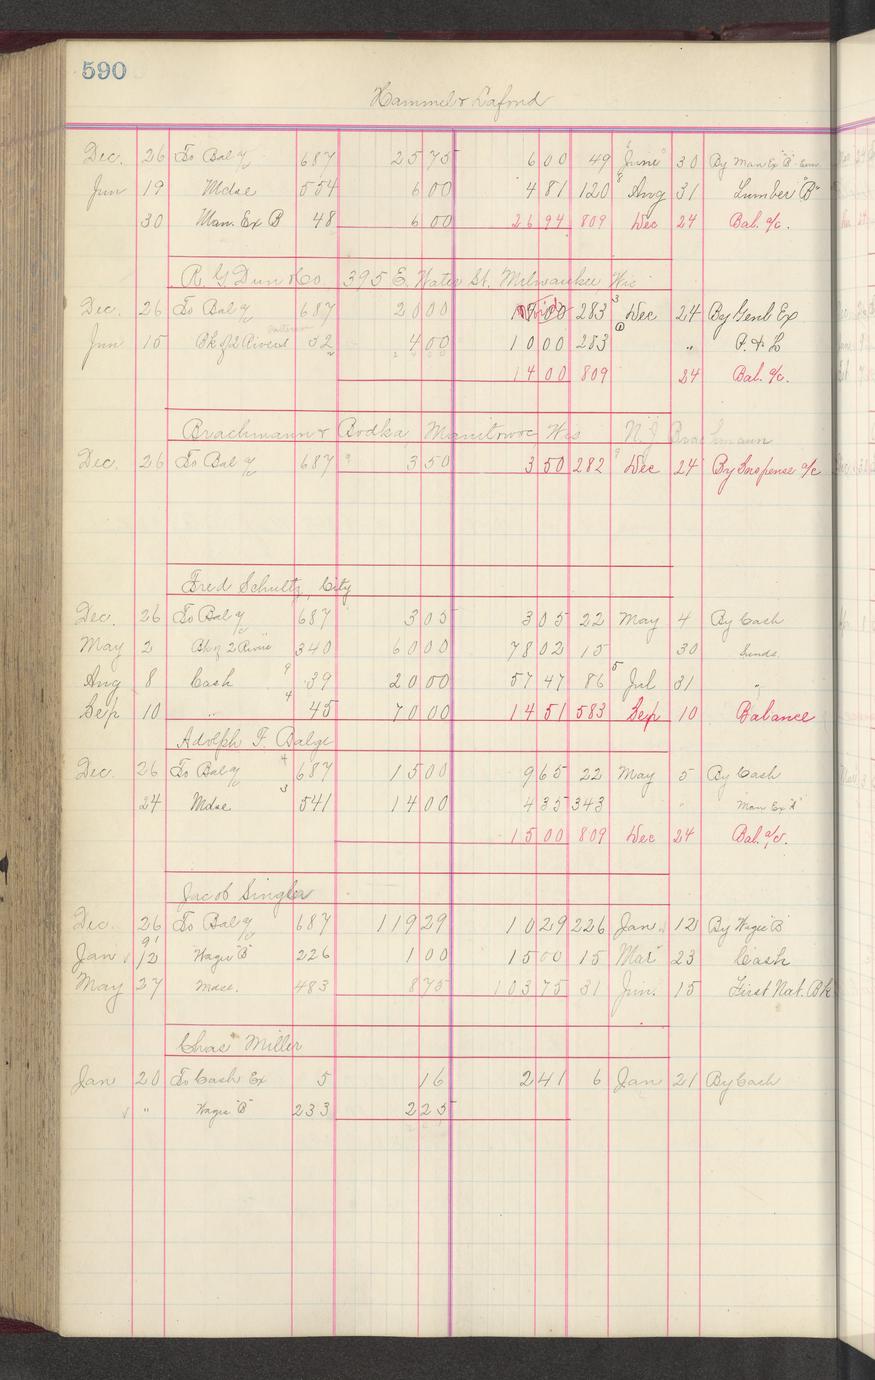 590
Hammel & Lafond
Dec. 26 To Bal a/c 687 25 75 6 00 49 June 30 By Man Ex "B"
Jun 19 Mdse 554 6 00 4 81 120 Aug 31 Lumber "B"
30 Man. Ex B 48 6 00 26 94 809 Dec 24 Bal. a/c.
R. G Dun & Co. 395 E. Water St. Milwaukee Wis
Dec. 26 To Bal a/c 687 20 00 283 Dec 24 By Genl Ex
Jun 15 Bk of 2 Rivers 32 4 00 10 00 283 " P. & L
14 00 809 24 Bal. a/c.
Brachmann & Bodka Manitowoc Wis N. J Brachmann
Dec. 26 To Bal a/c 687 3 50 3 50 282 Dec 24 By Suspense a/c
Fred Schultz, City
Dec. 26 To Bal a/c 687 3 05 3 05 22 May 4 By Cash
May 2 Bk of 2 Rivers 340 60 00 78 02 15 30 Sunds.
Aug 8 Cash 39 20 00 57 47 86 Jul 31 "
Sep 10 " 45 70 00 14 51 583 Sep 10 Balance
Adolph F. Balge
Dec. 26 To Bal a/c 687 15 00 9 65 22 May 5 By Cash
24 Mdse 541 14 00 4 35 343 " Man Ex "A"
15 00 809 Dec 24 Bal. a/c.
Jacob Singler
Dec. 26 To Bal a/c 687 119 29 10 29 226 Jan. 12 By Wages "B"
Jan 12 Wages "B" 226 1 00 15 00 15 Mar 23 Cash
May 27 Mdse. 483 8 75 103 75 31 Jun. 15 First Nat. Bk
Chas Miller
Jan 20 To Cash Ex 5 16 2 41 6 Jan 21 By Cash
" Wages "B" 233 2 25